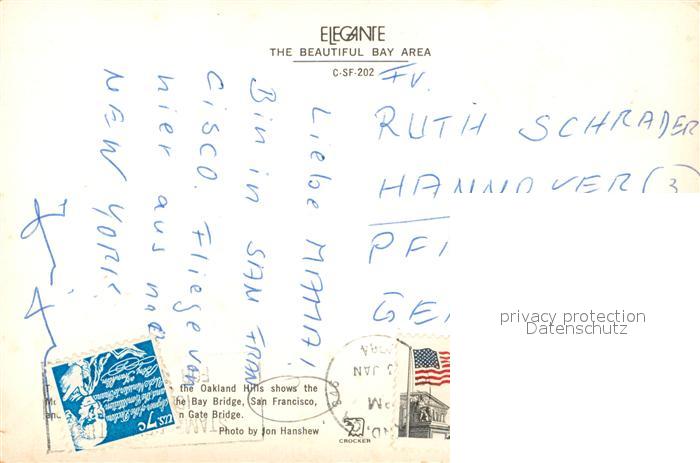 ELEGANTE
THE BEAUTIFUL BAY AREA
C-SF-202
Liebe MAMA!
Bin in SAN FRAN
CISCO. Fliege von
hier aus nac
NEW YORK.
Fr.
RUTH SCHRADER
HANNOVER (3
PFI
GE
privacy protection
Datenschutz
the Oakland Hills shows the
the Bay Bridge, San Francisco,
Gate Bridge.
Photo by Jon Hanshew
CROCKER
US 7c
JAN
PM